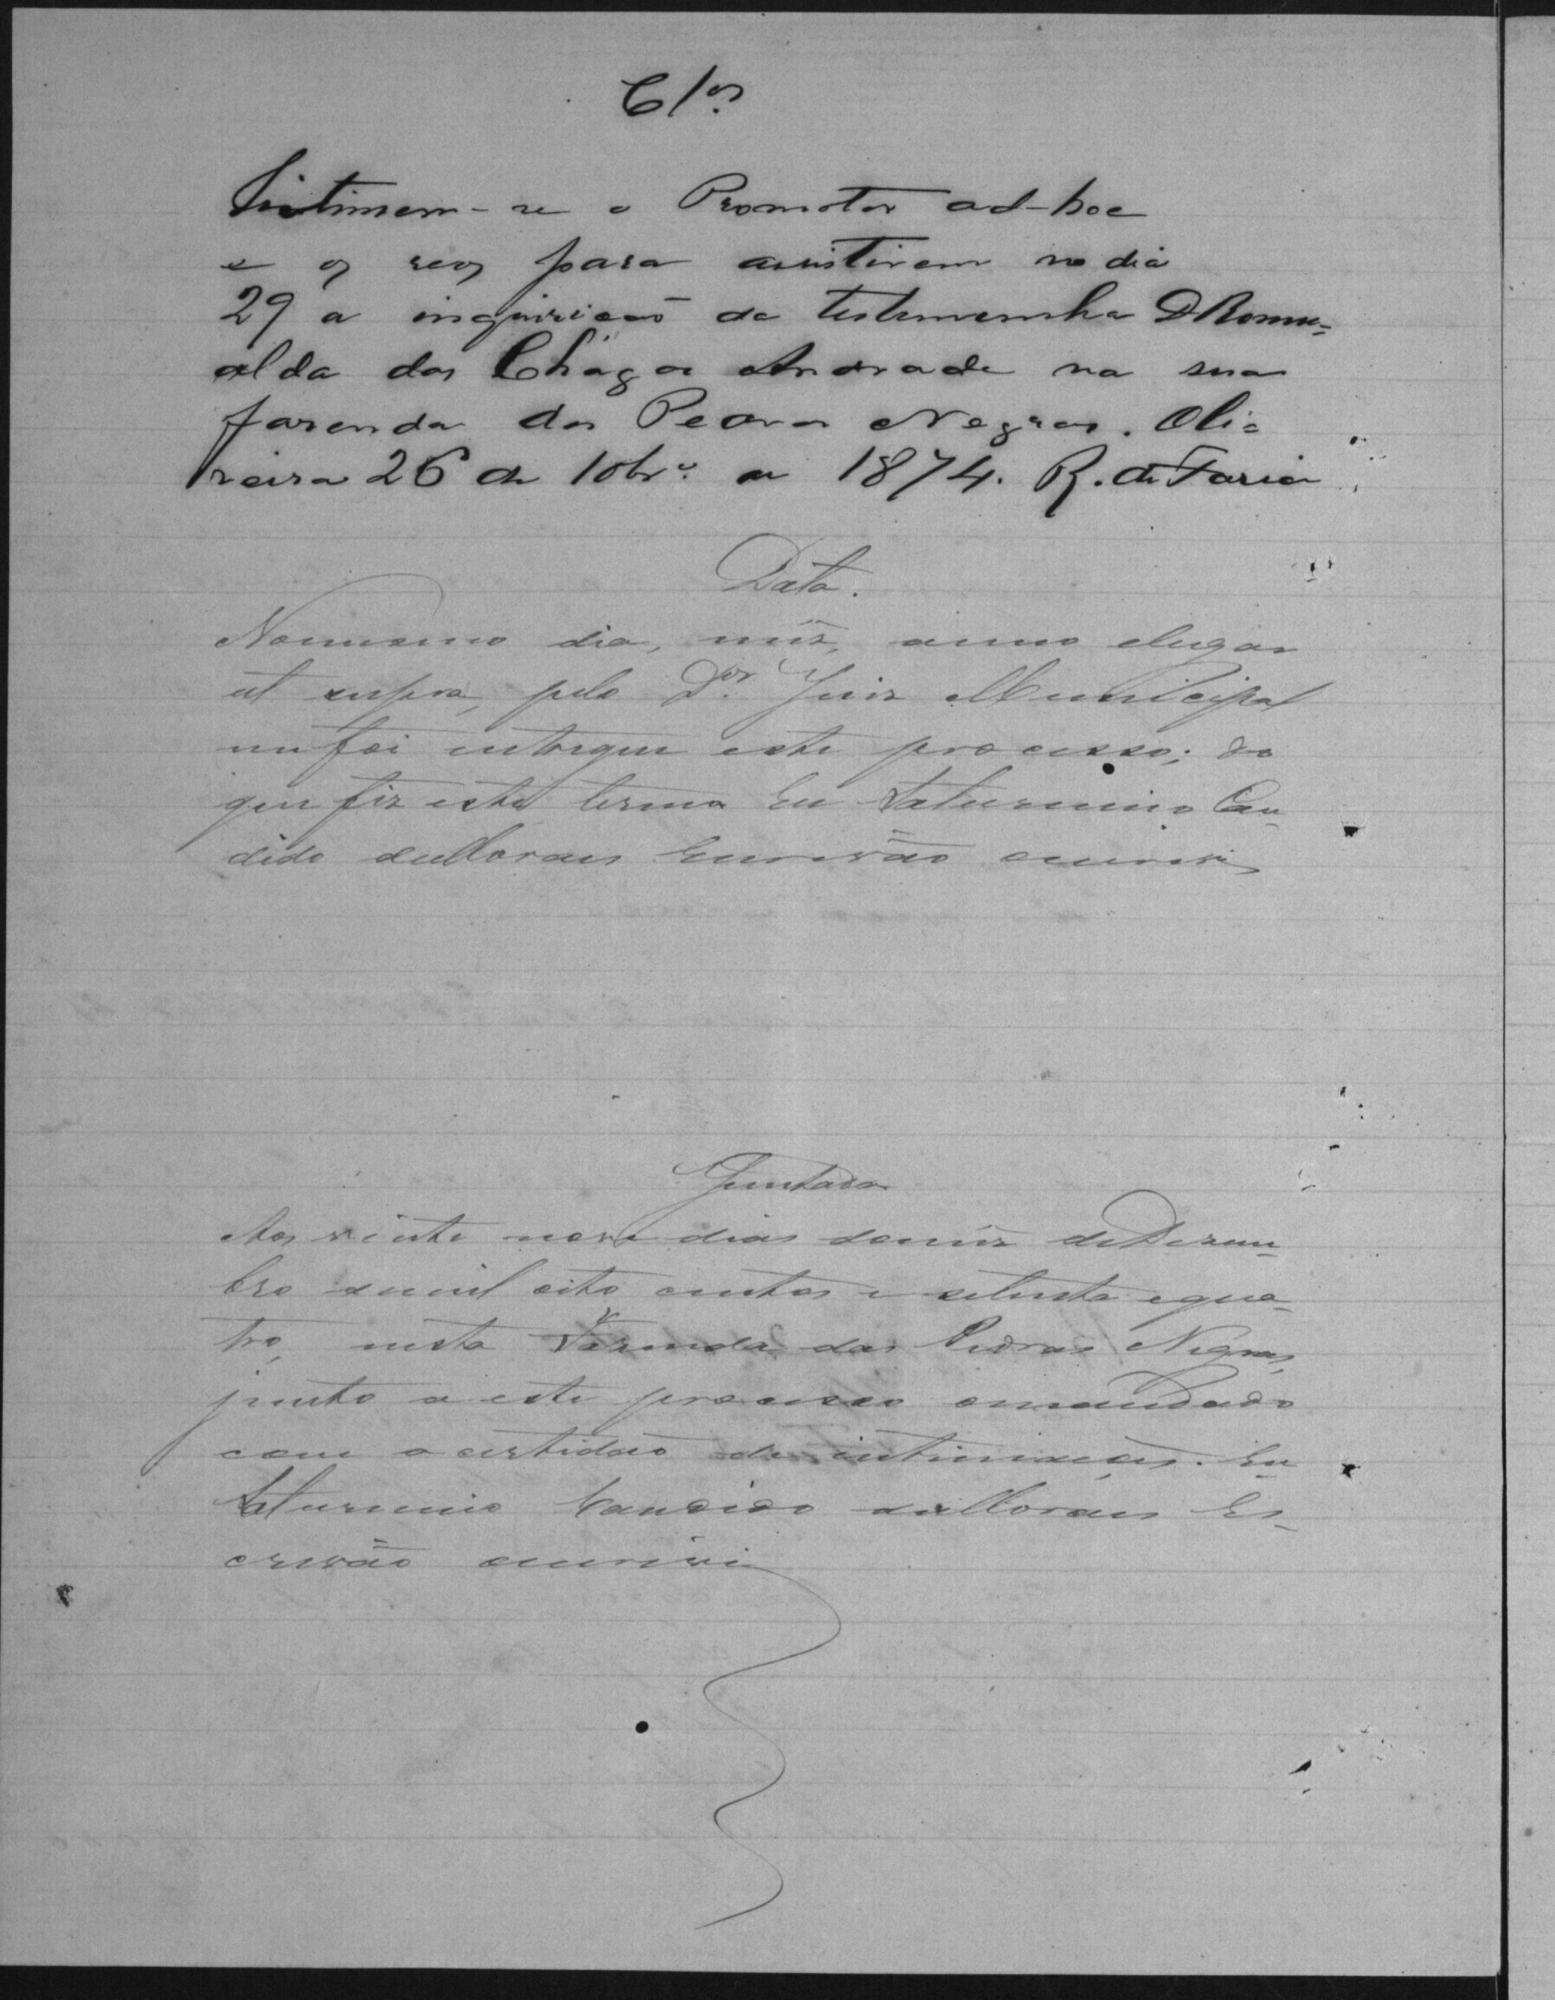 Cls.
Intimem-se o Promotor ad-hoc
e os reos para assistirem no dia
29 a inquirição da testemunha D Romu=
alda das Chagas Andrade na sua
fazenda das Pedras Negras. Oli=
veira 26 de 10br.º de 1874. R. de Faria
Data.
Nomesmo dia, mês, anno elugar
ut supra, pelo Dor. Juiz Municipal
mefoi entregue este processo; do
que fiz este termo Eu Saturnino Can-
dido deMoraes Escrivão escrivi
Juntada
Aos vinte nove dias domês deDezem-
bro demil oito centos e setenta equa-
tro, nesta Fazenda das Pedras Negras,
junto a este processo omandado
com a certidão de intimações. Eu
Saturnino Candido deMoraes Es-
crivão escrivi